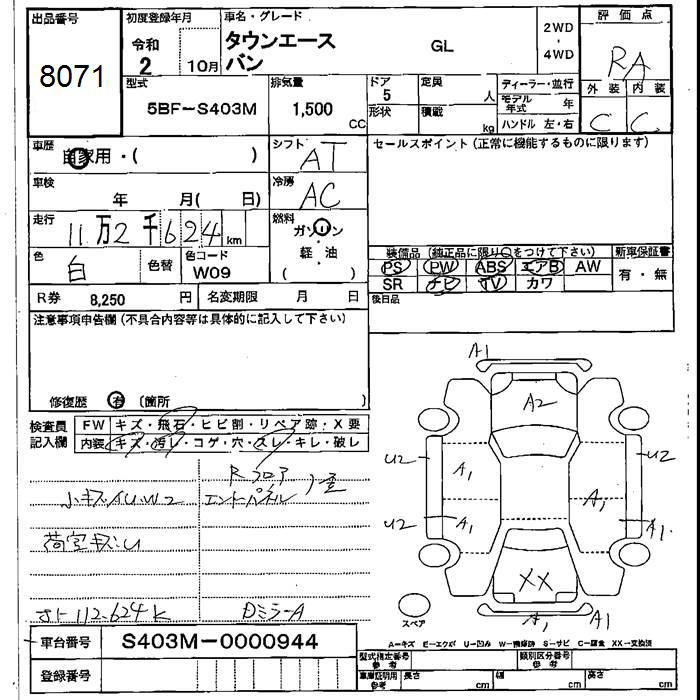 出品番号 初度登録年月 車名・グレード 2WD・4WD 評価点
8071 令和 2 10月 タウンエースバン GL RA
型式 排気量 ドア 定員 ディーラー・並行 外装 内装
5BF-S403M 1,500 CC 5 人 モデル年式 年 C C
形状 積載 kg ハンドル 左・右
車歴 自家用・( ) シフト AT セールスポイント(正常に機能するものに限ります)
車検 年 月( 日) 冷房 AC
走行 11万2千624km 燃料 ガソリン・軽油 ( )
色 白 色替 色コード W09
装備品(純正品に限り○をつけて下さい) 新車保証書
PS PW ABS エアB AW 有・無
SR ナビ TV カワ
R券 8,250 円 名変期限 月 日 後日品
注意事項申告欄(不具合内容等は具体的に記入して下さい)
修復歴 有 (箇所 )
検査員記入欄 FW キズ・飛石・ヒビ割・リペア跡・X要
内装 キズ・汚レ・コゲ・穴・スレ・キレ・破レ
Rフロア
小キズ.AU.W2 エンドパネル
荷室キズ.U
メーター112.624K DミラーA
A1
A2
U2 A1 U2
A1
U2 A1 A1
XX
スペア A1 A1
A-キズ E-エクボ U-凹み W-補修跡 S-サビ C-腐食 XX-交換済
車台番号 S403M-0000944
登録番号
型式指定番号 参考 類別区分番号 参考
車庫証明用 参考 長さ cm 幅 cm 高さ cm